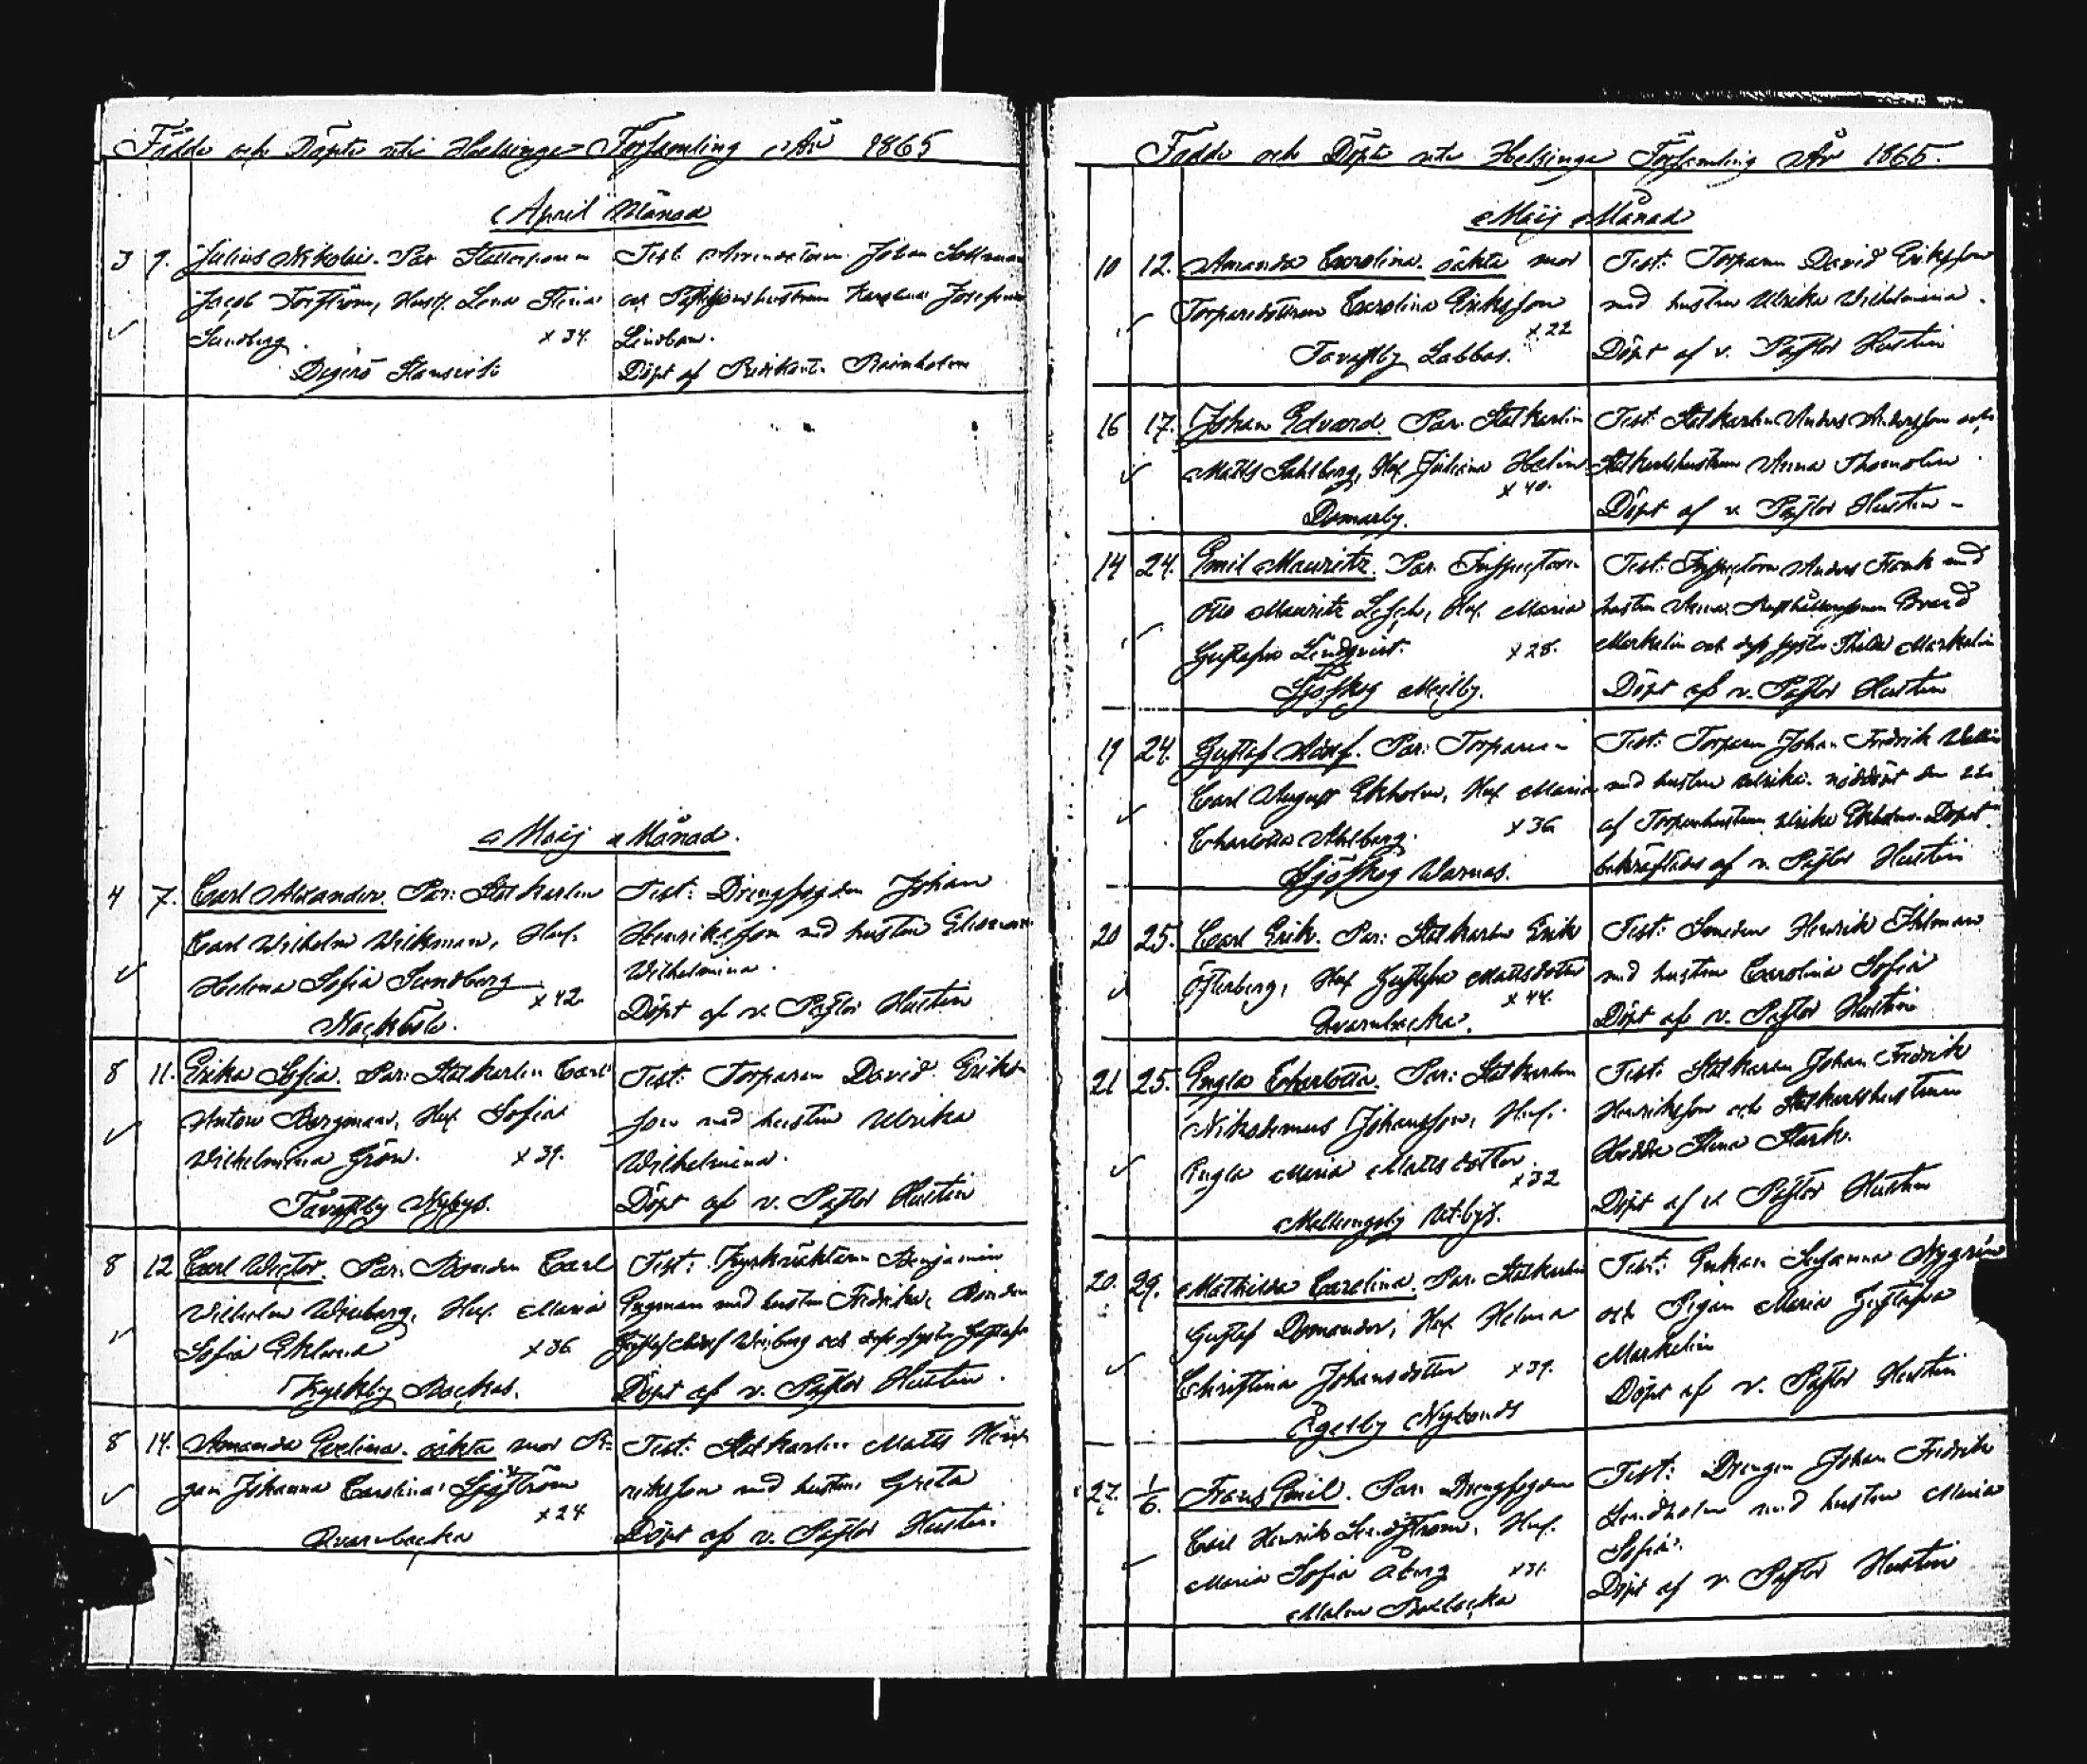 Födde och Döpte uti Helsinge Församling År 1865
April Månad
3 9. Julius Nikolai. Par
Jacob Torström, Hust. Lena Stina
Sundberg. x 34.
Degerö Stansvik
Test. Arrendatorn Johan
och hustrun Karolina Josefina
Lindbom.
Döpt af Predikant. Reinholm
Maij Månad.
4 7. Carl Alexander. Par: Statkarlen
Carl Wilhelm Wilkman, Hust.
Helena Sofia Sundberg
x 42.
Nackböle.
Test: Drengsfogden Johan
Henriksson med hustru
Wilhelmina.
Döpt af v. Pastor Hustin
8 11. Erika Sofia. Par: Statkarlen Carl
Anton Bergman, Hu. Sofia
Wilhelmina Grön. x 39.
Tavastby Nybys.
Test: Torparen David Eriks-
son med hustru Ulrika
Wilhelmina.
Döpt af v. Pastor Hustin
8 12 Carl Wictor. Par: Bonden Carl
Wilhelm Wiberg, Hu. Maria
Sofia Eklund x 36
Kyrkby Backas.
Test: Kyrkväktaren Benjamin
Engman med hustru Fredrika, Bonden
Gustaf Adolf Wiberg och dess syster Gustafva
Döpt af v. Pastor Hustin.
8 14. Amanda Evelina. oäkta mor Pi-
gan Johanna Carolina Sjöström
x 24
Qvarnbacka
Test: Statkarlen Matts Hen-
riksson med hustru Greta
Döpt af v. Pastor Hustin.
Födde och Döpte uti Helsinge Församling År 1865.
Maij Månad
10 12. Amanda Carolina. oäkta mor
Torparedottren Carolina Eriksson
x 22
Tavastby Labbas.
Test: Torparen David Eriksson
med hustru Ulrika Wilhelmina.
Döpt af v. Pastor Hustin
16 17. Johan Edvard. Par: Statkarlen
Matts Sahlberg, Hu. Juliana Helin
x 40.
Domarby.
Test: Statkarlen Anders Andersson och
Statkarlshustrun Anna
Döpt af v. Pastor Hustin
14 24. Emil Mauritz. Par. Inspectoren
Otto Mauritz Hu. Maria
Gustafva Lindqvist. x 28.
Sjöskog Meilby.
Test: Inspectoren Anders Frank med
hustru Anna,
Markelin och dess syster Thilda Markelin
Döpt af v. Pastor Hustin
19 24. Gustaf Adolf. Par: Torparen
Carl August Ekholm, Hu. Maria
Charlotta Ahlberg. x 36
Sjöskog Warnas.
Test: Torparen Johan Fredrik Wallin
med hustru Ulrika. nöddöpt den 22
af Torparhustrun Ulrika Ekholm. Dopet
bekräftades af v. Pastor Hustin
20 25. Carl Erik. Par: Statkarlen Erik
Österberg, Hu. Gustafva Mattsdotter
x 44.
Qvarnbacka.
Test: Smeden Henrik Ihlman
med hustru Carolina Sofia
Döpt af v. Pastor Hustin
21 25. Engla Charlotta. Par: Statkarlen
Nikodemus Johansson, Hust.
Engla Maria Mattsdotter
x 32
Mellungsby Utbys.
Test: Statkarlen Johan Fredrik
Henriksson och Statkarlshustrun
Hedda Stina Stark.
Döpt af v. Pastor Hustin
20. 29. Mathilda Carolina. Par: Statkarlen
Gustaf Domander, Hu. Helena
Christina Johansdotter x 39.
Ågelby Nybonds
Test: Enkan Susanna Nygrén
och Pigan Maria Gustafva
Markelin
Döpt af v. Pastor Hustin
27. 1/6. Frans Emil. Par: Drengsfogden
Henrik Lindström, Hust.
Maria Sofia Åberg x 31.
Malm Bollbacka
Test: Drengen Johan Fredrik
Lindholm med hustru Maria
Sofia.
Döpt af v. Pastor Hustin